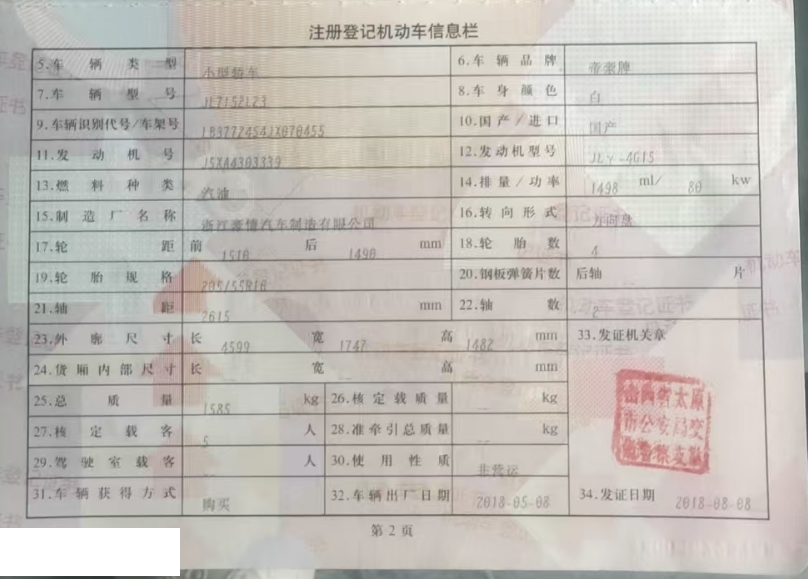 注册登记机动车信息栏
5.车辆类型 小型轿车 6.车辆品牌 帝豪牌
7.车辆型号 JL7152L23 8.车身颜色 白
9.车辆识别代号/车架号 LB377Z4S4JX070455 10.国产/进口 国产
11.发动机号 J5XA4303339 12.发动机型号 JLY-4G15
13.燃料种类 汽油 14.排量/功率 1498 ml/ 80 kw
15.制造厂名称 浙江豪情汽车制造有限公司 16.转向形式 方向盘
17.轮距 前 1510 后 1490 mm 18.轮胎数 4
19.轮胎规格 205/55R16 20.钢板弹簧片数 后轴 片
21.轴距 2615 mm 22.轴数 2
23.外廓尺寸 长 4599 宽 1747 高 1482 mm 33.发证机关章
24.货厢内部尺寸 长 宽 高 mm
25.总质量 1585 kg 26.核定载质量 -- kg
山西省太原
市公安局交
警支队
27.核定载客 5 人 28.准牵引总质量 -- kg
29.驾驶室载客 -- 人 30.使用性质 非营运
31.车辆获得方式 购买 32.车辆出厂日期 2018-05-08 34.发证日期 2018-08-08
第2页